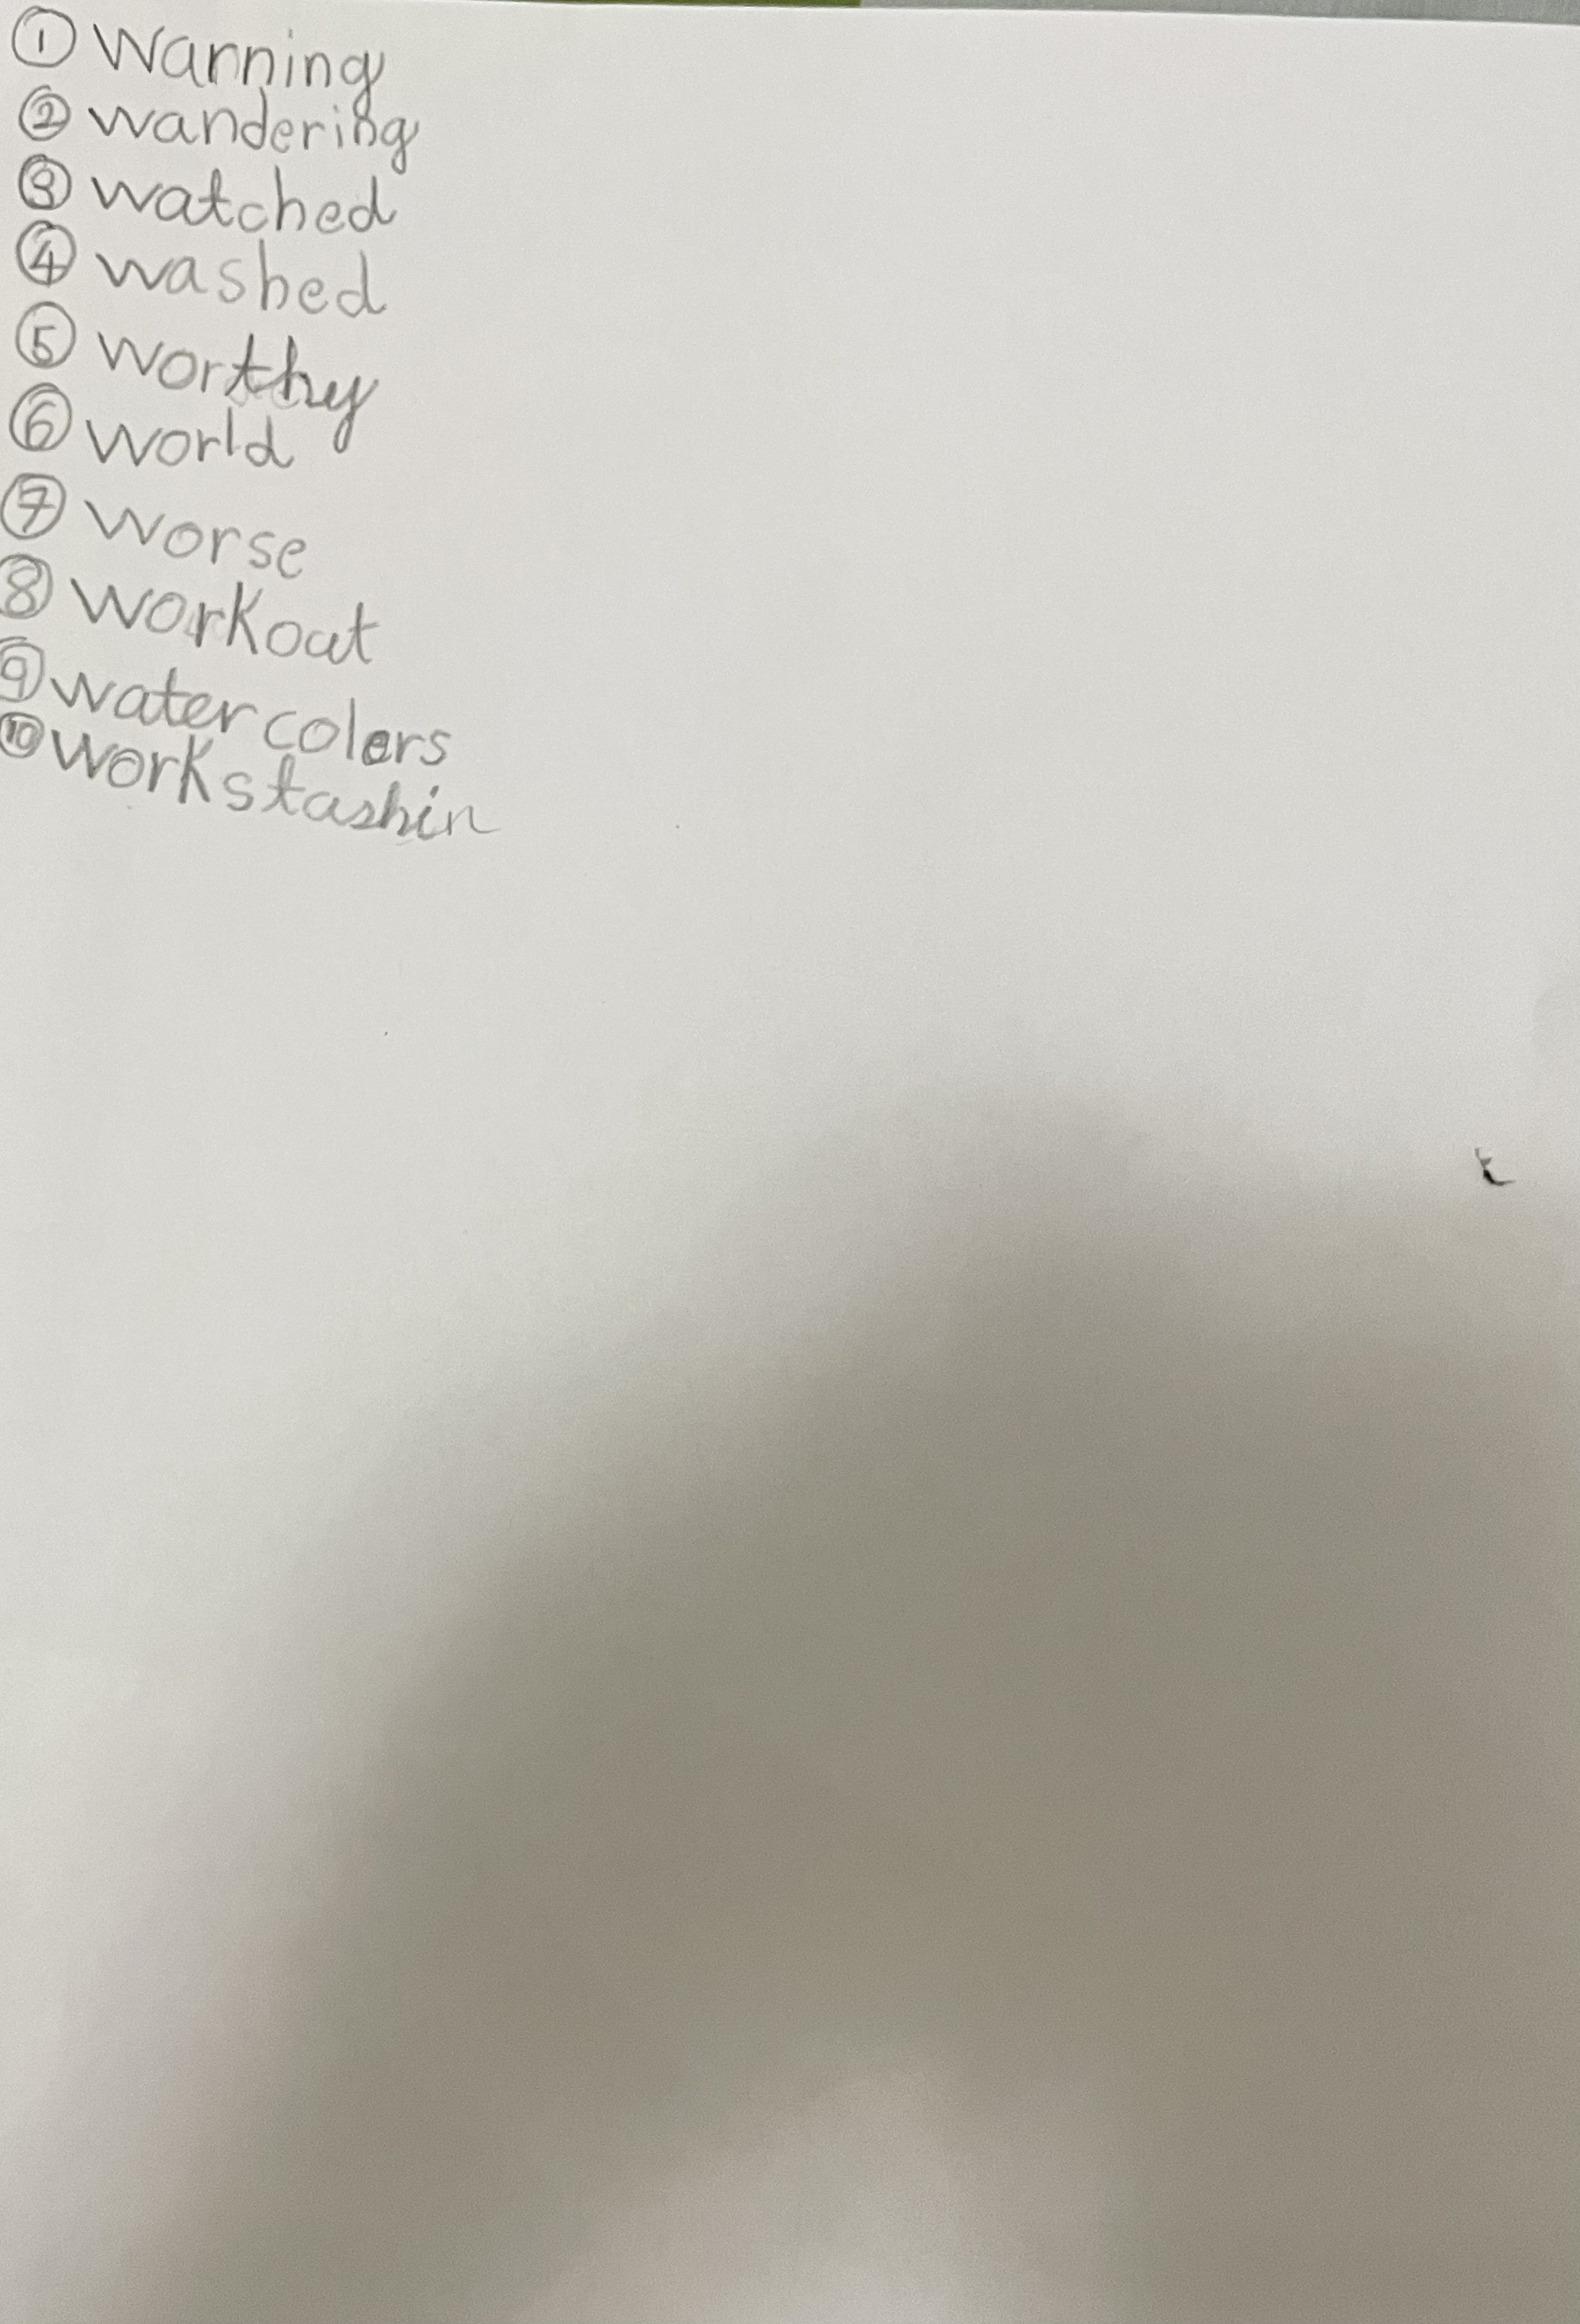 ① Warning
② wandering
③ watched
④ washed
⑤ worthy
⑥ world
⑦ worse
⑧ workout
⑨ water colers
⑩ work stashin